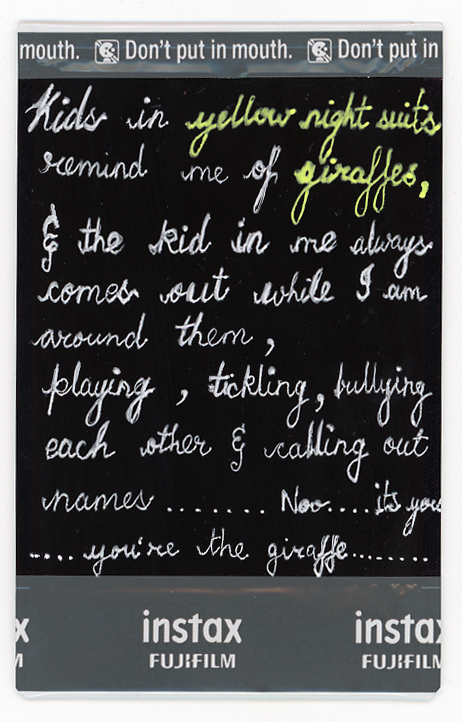 mouth. Don't put in mouth. Don't put in
Kids in yellow night suits
remind me of giraffes,
& the kid in me always
comes out while I am
around them,
playing, tickling, bullying
each other & calling out
names ....... Noo.... its you
.... you're the giraffe........
x instax insta
M FUJIFILM FUJIFILM